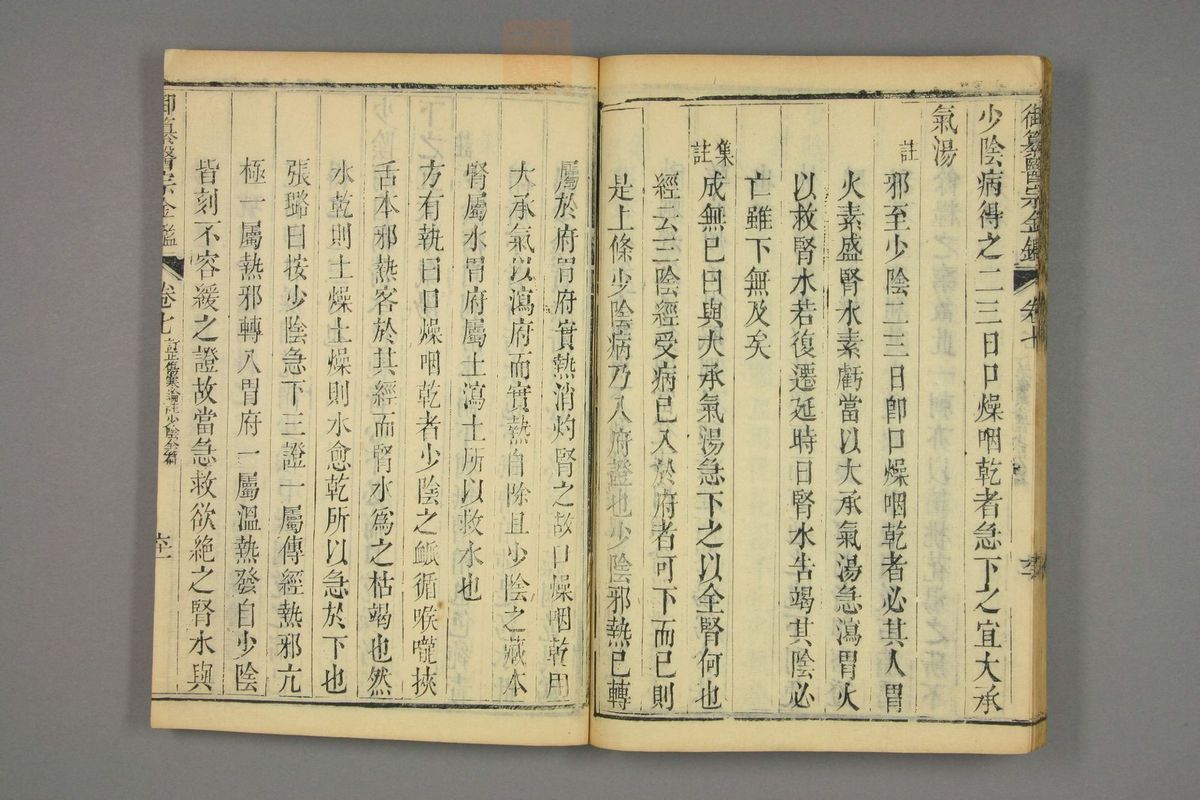 御纂醫宗金鑑 卷七
少陰病得之二三日口燥咽乾者急下之宜大承
氣湯
註
邪至少陰二三日卽口燥咽乾者必其人胃
火素盛腎水素虧當以大承氣湯急瀉胃火
以救腎水若復遷延時日腎水告竭其陰必
亡雖下無及矣
集註
成無已曰與大承氣湯急下之以全腎何也
經云三陰經受病已入於府者可下而已則
是上條少陰病乃入府證也少陰邪熱已轉
屬於府胃府實熱消灼腎之故口燥咽乾用
大承氣以瀉府而實熱自除且少陰之藏本
腎屬水胃府屬土瀉土所以救水也
方有執曰口燥咽乾者少陰之脈循喉嚨挾
舌本邪熱客於其經而腎水爲之枯竭也然
水乾則土燥土燥則水愈乾所以急於下也
張璐曰按少陰急下三證一屬傳經熱邪亢
極一屬熱邪轉入胃府一屬溫熱發自少陰
皆刻不容緩之證故當急救欲絶之腎水與
御纂醫宗金鑑 卷七 訂正傷寒論註少陰全篇